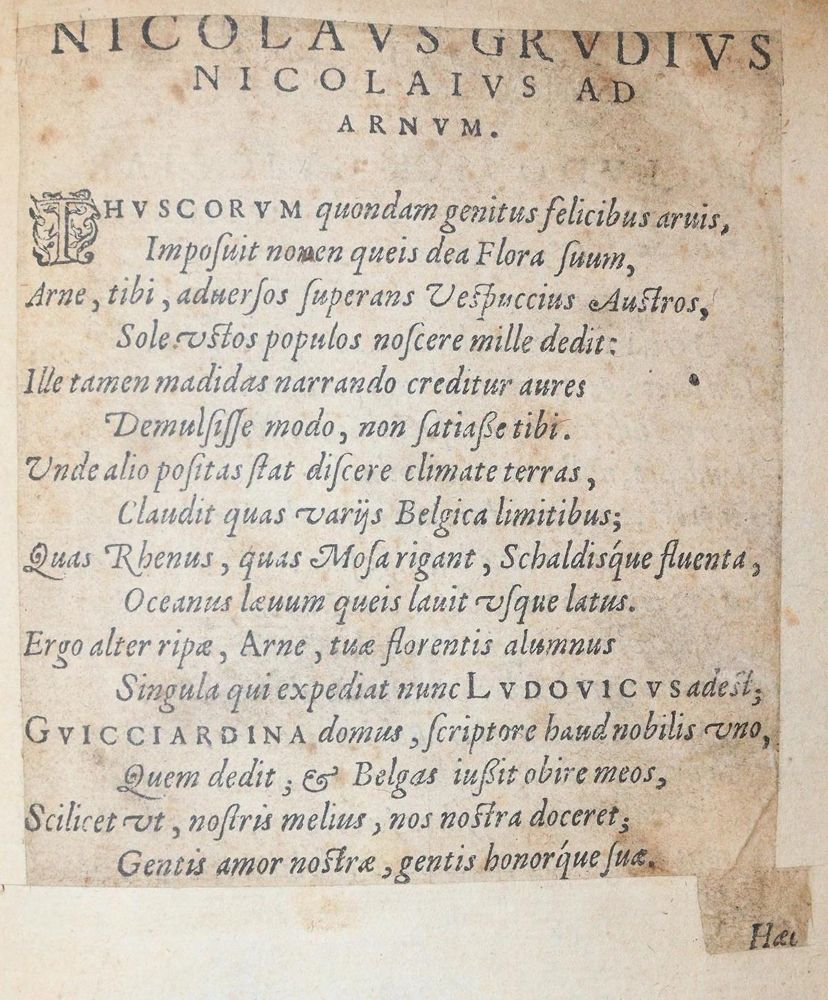 NICOLAVS GRVDIVS
NICOLAIVS AD
ARNVM.
THVSCORVM quondam genitus felicibus aruis,
Imposuit nomen queis dea Flora suum,
Arne, tibi, aduersos superans Vespuccius Austros,
Sole vstos populos noscere mille dedit:
Ille tamen madidas narrando creditur aures
Demulsisse modo, non satiaße tibi.
Vnde alio positas stat discere climate terras,
Claudit quas varijs Belgica limitibus;
Quas Rhenus, quas Mosa rigant, Schaldisq́ue fluenta,
Oceanus læuum queis lauit vsque latus.
Ergo alter ripæ, Arne, tuæ florentis alumnus
Singula qui expediat nunc LVDOVICVS adest;
GVICCIARDINA domus, scriptore haud nobilis vno,
Quem dedit; & Belgas iußit obire meos,
Scilicet vt, nostris melius, nos nostra doceret;
Gentis amor nostræ, gentis honorq́ue suæ.
Hæc